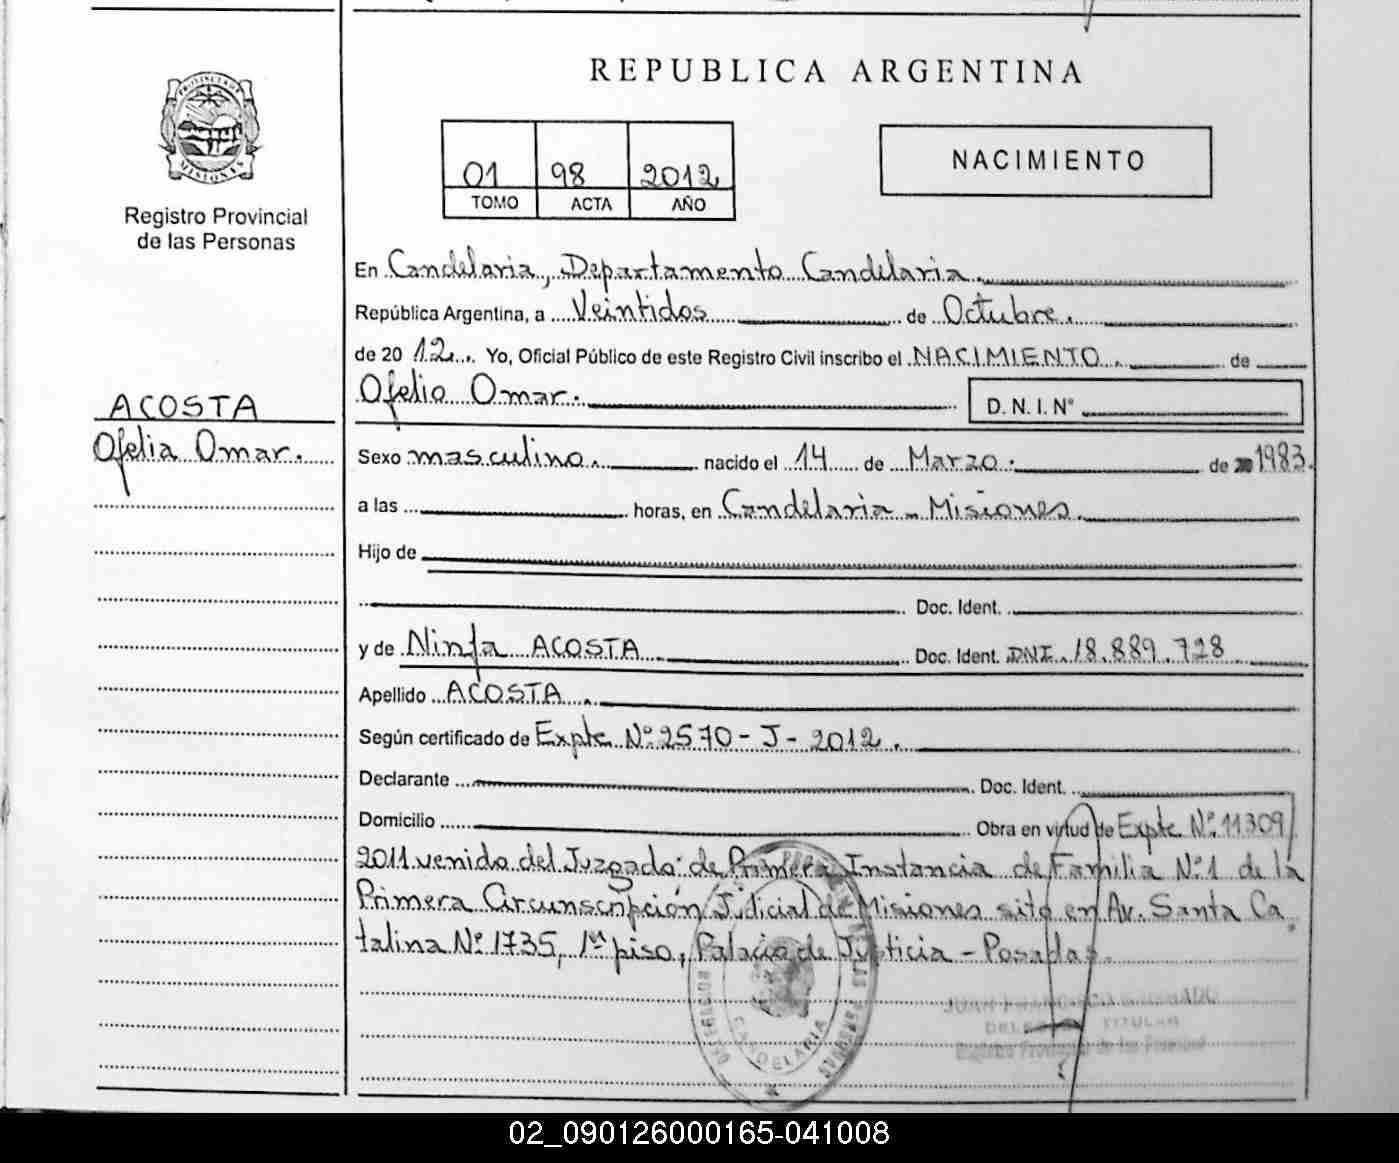 REPUBLICA ARGENTINA
PROVINCIA DE MISIONES
Registro Provincial
de las Personas
01 98 2012
TOMO ACTA AÑO
NACIMIENTO
En Candelaria, Departamento Candelaria.
República Argentina, a Veintidos de Octubre.
de 20 12 Yo, Oficial Público de este Registro Civil inscribo el NACIMIENTO. de
Ofelio Omar. D. N. I. N°
ACOSTA
Ofelia Omar.
Sexo masculino. nacido el 14 de Marzo. de 1983.
a las horas, en Candelaria - Misiones.
Hijo de
Doc. Ident.
y de Ninfa ACOSTA. Doc. Ident. DNI. 18.889.728
Apellido ACOSTA.
Según certificado de Expte N° 2570 - J - 2012.
Declarante Doc. Ident.
Domicilio Obra en virtud de Expte N° 11309/
2011 venido del Juzgado de Primera Instancia de Familia N° 1 de la
Primera Circunscripción Judicial de Misiones sito en Av. Santa Ca
talina N° 1735, 1er piso, Palacio de Justicia - Posadas.
JUAN FRANCISCO
TITULAR
Registro Provincial de las Personas
CANDELARIA
02_090126000165-041008